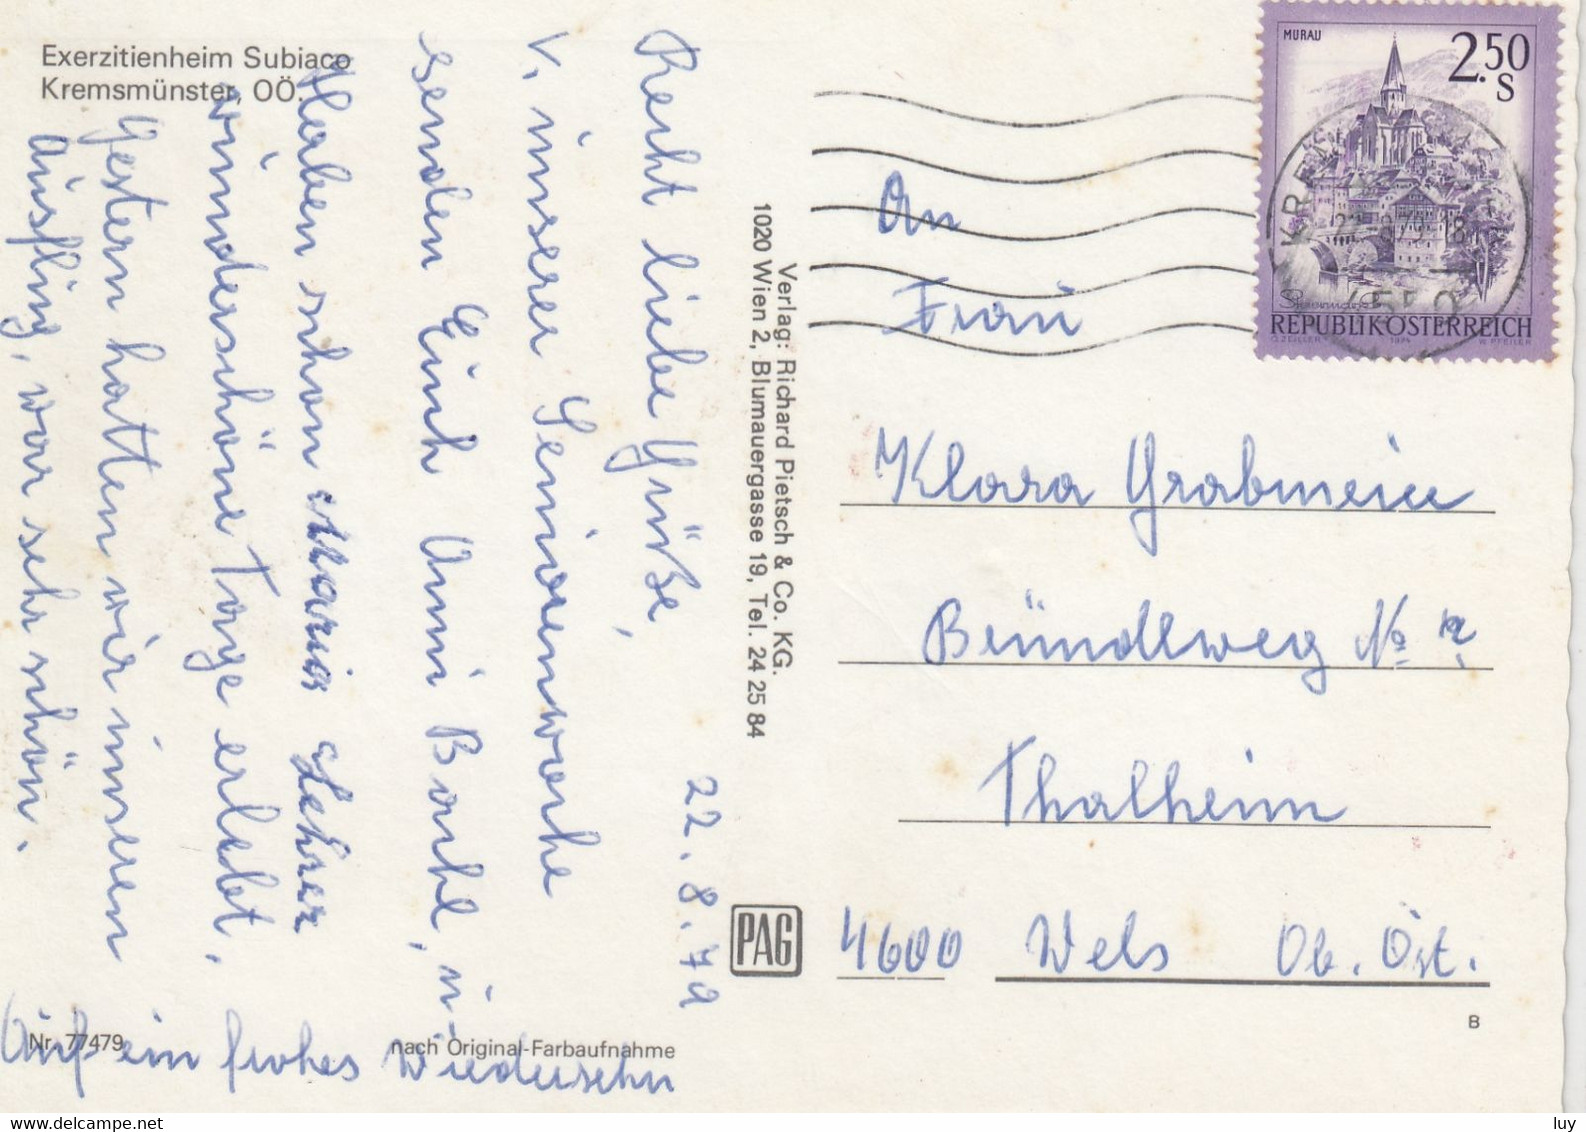 Exerzitienheim Subiaco
Kremsmünster, OÖ.
22. 8. 79
Recht liebe Grüße,
v. unserer Seniorenwoche
senden Euch Anni Bachl, u.
Maria Lehner
Haben schon
wunderschöne Tage erlebt,
Gestern hatten wir unseren
Ausflug, war sehr schön.
Auf ein frohes Wiedersehn
Nr. 77479
nach Original-Farbaufnahme
Verlag: Richard Pietsch & Co. KG.
1020 Wien 2, Blumauergasse 19, Tel. 24 25 84
PAG
MURAU
2.50
S
Steiermark
REPUBLIK ÖSTERREICH
O. ZEILLER
1974
W. PFEILER
4550
An
Frau
Klara
Thalheim
4600 Wels Ob. Öst.
B